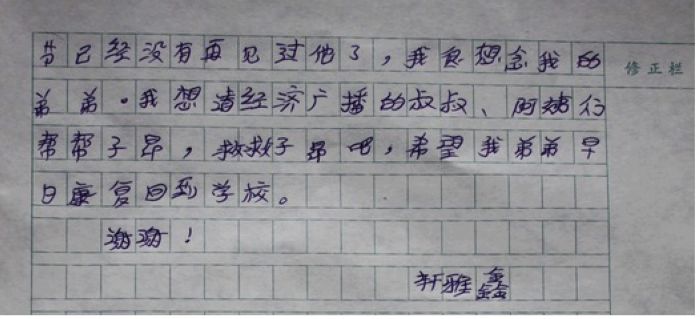 已经没有再见过他了，我想念我的
弟弟。我想经济广播的叔叔、阿姨
帮帮子昂，救救子昂吧，希望我弟弟早
日康复回到学校。
谢谢！
轩雅鑫
修正栏